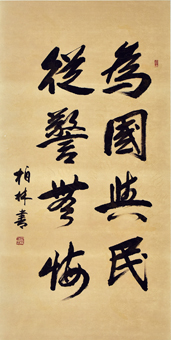 為國與民
從警無悔
柏林書